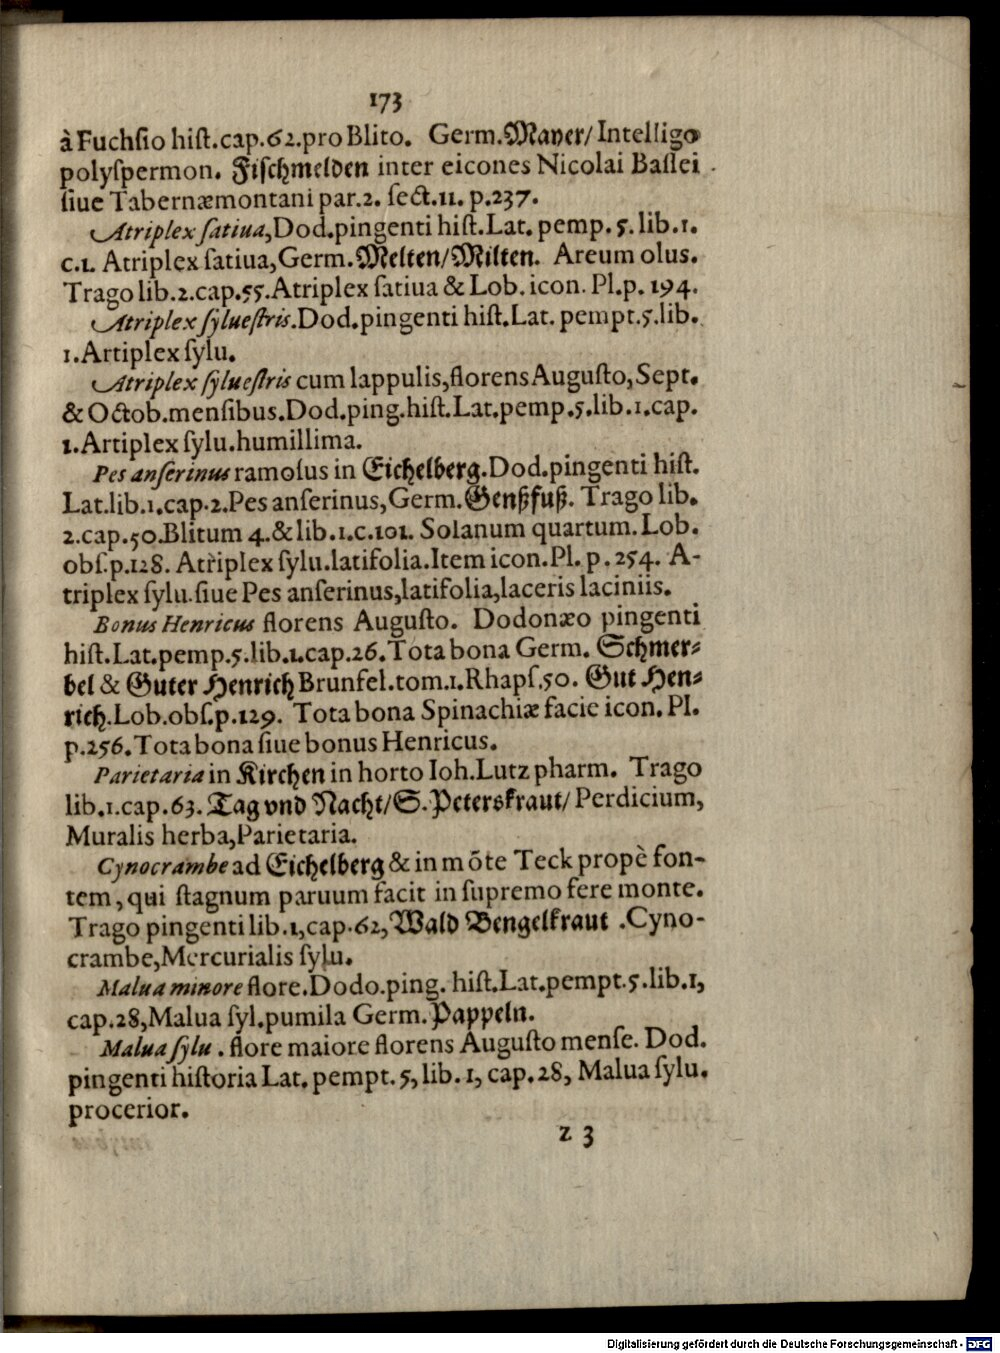 173
à Fuchſio hiſt.cap.62.pro Blito. Germ.Mayer/Intelligo
polyſpermon. Fiſchmelden inter eicones Nicolai Baſſei
ſiue Tabernæmontani par.2. ſect.11. p.237.
Atriplex ſatiua,Dod.pingenti hiſt.Lat. pemp. 5. lib.1.
c.1. Atriplex ſatiua,Germ.Melten/Milten. Areum olus.
Trago lib.2.cap.55.Atriplex ſatiua & Lob. icon. Pl.p. 194.
Atriplex ſylueſtris.Dod.pingenti hiſt.Lat. pempt.5.lib.
1.Artiplex ſylu.
Atriplex ſylueſtris cum lappulis,florens Auguſto,Sept.
& Octob.menſibus.Dod.ping.hiſt.Lat.pemp.5.lib.1.cap.
1.Artiplex ſylu.humillima.
Pes anſerinus ramoſus in Eichelberg.Dod.pingenti hiſt.
Lat.lib.1.cap.2.Pes anſerinus,Germ.Genßfuß. Trago lib.
2.cap.50.Blitum 4.& lib.1.c.101. Solanum quartum. Lob.
obſ.p.128. Atriplex ſylu.latifolia.Item icon.Pl. p. 254. A-
triplex ſylu.ſiue Pes anſerinus,latifolia,laceris laciniis.
Bonus Henricus florens Auguſto. Dodonæo pingenti
hiſt.Lat.pemp.5.lib.1.cap.26.Tota bona Germ. Schmer-
bel & Guter Henrich Brunfel.tom.1.Rhapſ.50. Gut Hen-
rich.Lob.obſ.p.129. Tota bona Spinachiæ facie icon. Pl.
p.256.Tota bona ſiue bonus Henricus.
Parietaria in Kirchen in horto Ioh.Lutz pharm. Trago
lib.1.cap.63.Tag vnd Nacht/S.Peterskraut/ Perdicium,
Muralis herba,Parietaria.
Cynocrambe ad Eichelberg & in mõte Teck propè fon-
tem, qui ſtagnum paruum facit in ſupremo fere monte.
Trago pingenti lib.1,cap.62,Wald Bengelkraut .Cyno-
crambe,Mercurialis ſylu.
Malua minore flore.Dodo.ping. hiſt.Lat.pempt.5.lib.1,
cap.28,Malua ſyl.pumila Germ.Pappeln.
Malua ſylu . flore maiore florens Auguſto menſe. Dod.
pingenti hiſtoria Lat. pempt. 5, lib. 1, cap. 28, Malua ſylu.
procerior.
z 3
Digitalisierung gefördert durch die Deutsche Forschungsgemeinschaft - DFG